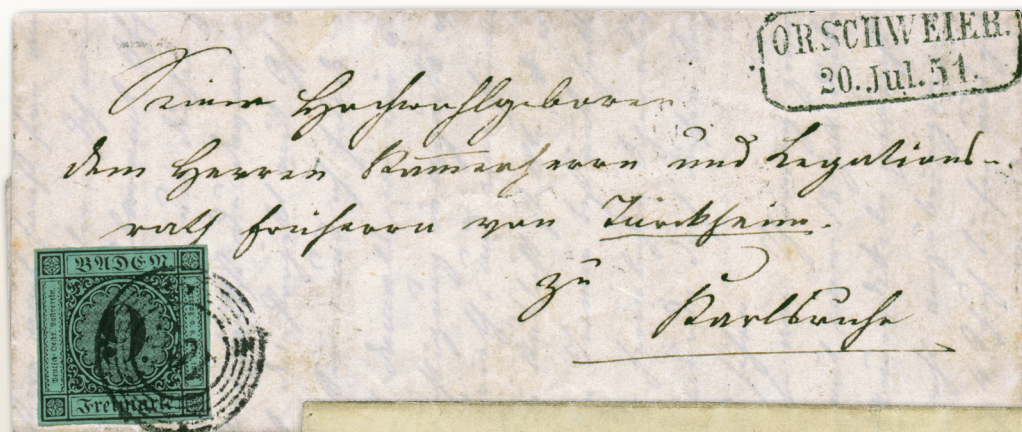 ORSCHWEIER.
20. Jul. 51.
Seiner Hochwohlgeboren
dem Herren Kam̅erherrn und Legations-
rath Freiherrn von Türckheim.
zu
Karlsruhe
BADEN
9
Freimarke